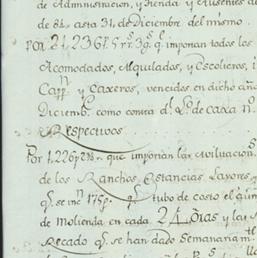 de Administracion, y tienda y Ausentes de
de 82. asta 31. de Diciembre del mismo.
Por 21,236 p.s 5 r.s 3 g.s q. importan todos los
Acomodados, Alquilados, y Escoleros,
Capp.n y Caxeros, vencidos en dicho año
Diciemb.e como consta d.l L.o de Caxa n.o
Respectivos
Por 1,226 p.s 2 r.s que importan las
de los Ranchos, Estancias, Lavores, y
q.e se inc.n 175 p.s q.e tubo de costo el
de Molienda en cada 24 Dias y las
Recado q.e se han dado Semanariam.te